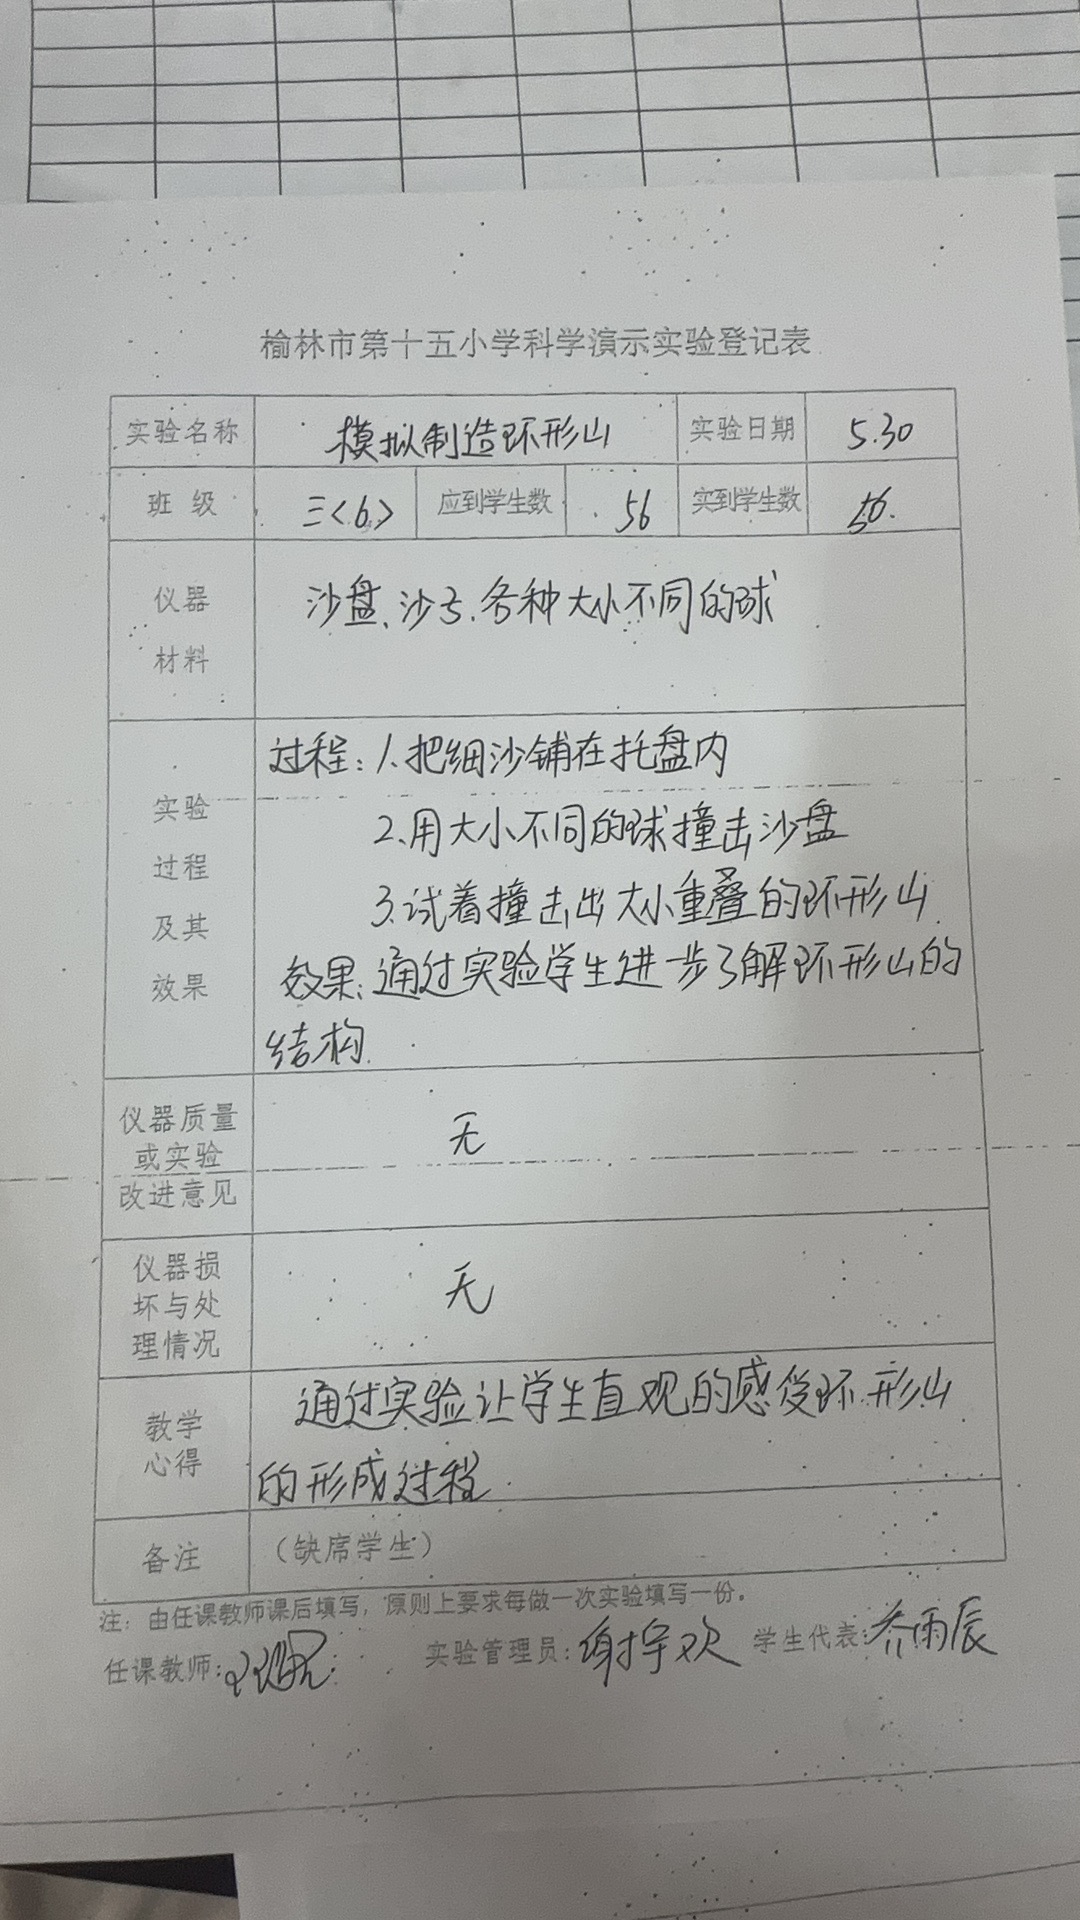 榆林市第十五小学科学演示实验登记表
实验名称 模拟制造环形山 实验日期 5.30
班 级 三<6> 应到学生数 56 实到学生数 56.
仪器
材料
沙盘、沙子、各种大小不同的球
实验
过程
及其
效果
过程：1.把细沙铺在托盘内
2.用大小不同的球撞击沙盘
3.试着撞击出大小重叠的环形山
效果：通过实验学生进一步了解环形山的
结构.
仪器质量
或实验
改进意见
无
仪器损
坏与处
理情况
无
教学
心得
通过实验让学生直观的感受环形山
的形成过程.
备注 （缺席学生）
注：由任课教师课后填写，原则上要求每做一次实验填写一份。
任课教师： 实验管理员： 学生代表：乔雨辰